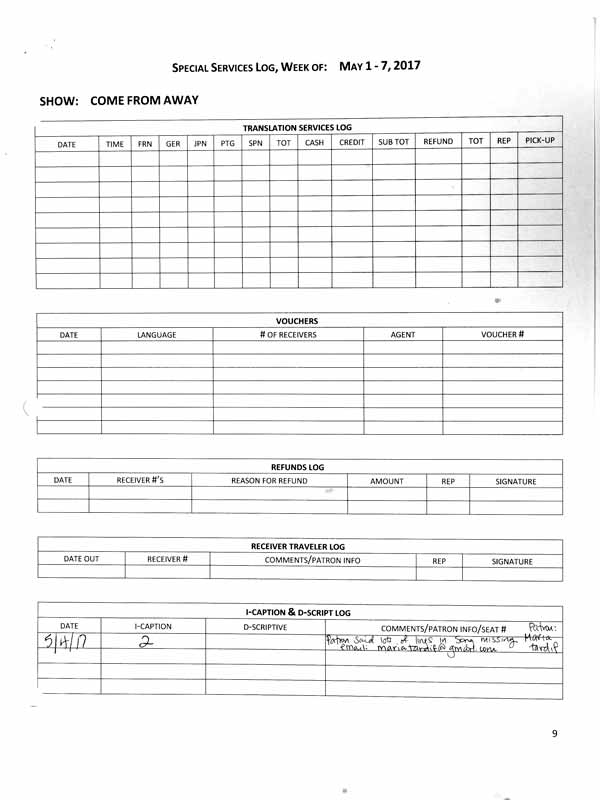 SPECIAL SERVICES LOG, WEEK OF: MAY 1 - 7, 2017
SHOW: COME FROM AWAY
TRANSLATION SERVICES LOG
DATE TIME FRN GER JPN PTG SPN TOT CASH CREDIT SUB TOT REFUND TOT REP PICK-UP
VOUCHERS
DATE LANGUAGE # OF RECEIVERS AGENT VOUCHER #
REFUNDS LOG
DATE RECEIVER #'S REASON FOR REFUND AMOUNT REP SIGNATURE
RECEIVER TRAVELER LOG
DATE OUT RECEIVER # COMMENTS/PATRON INFO REP SIGNATURE
I-CAPTION & D-SCRIPT LOG
DATE I-CAPTION D-SCRIPTIVE COMMENTS/PATRON INFO/SEAT # Patron:
5/4/17 2 Patron said lots of lines in song missing Maria
email: mariatardif@gmail.com tardif
9